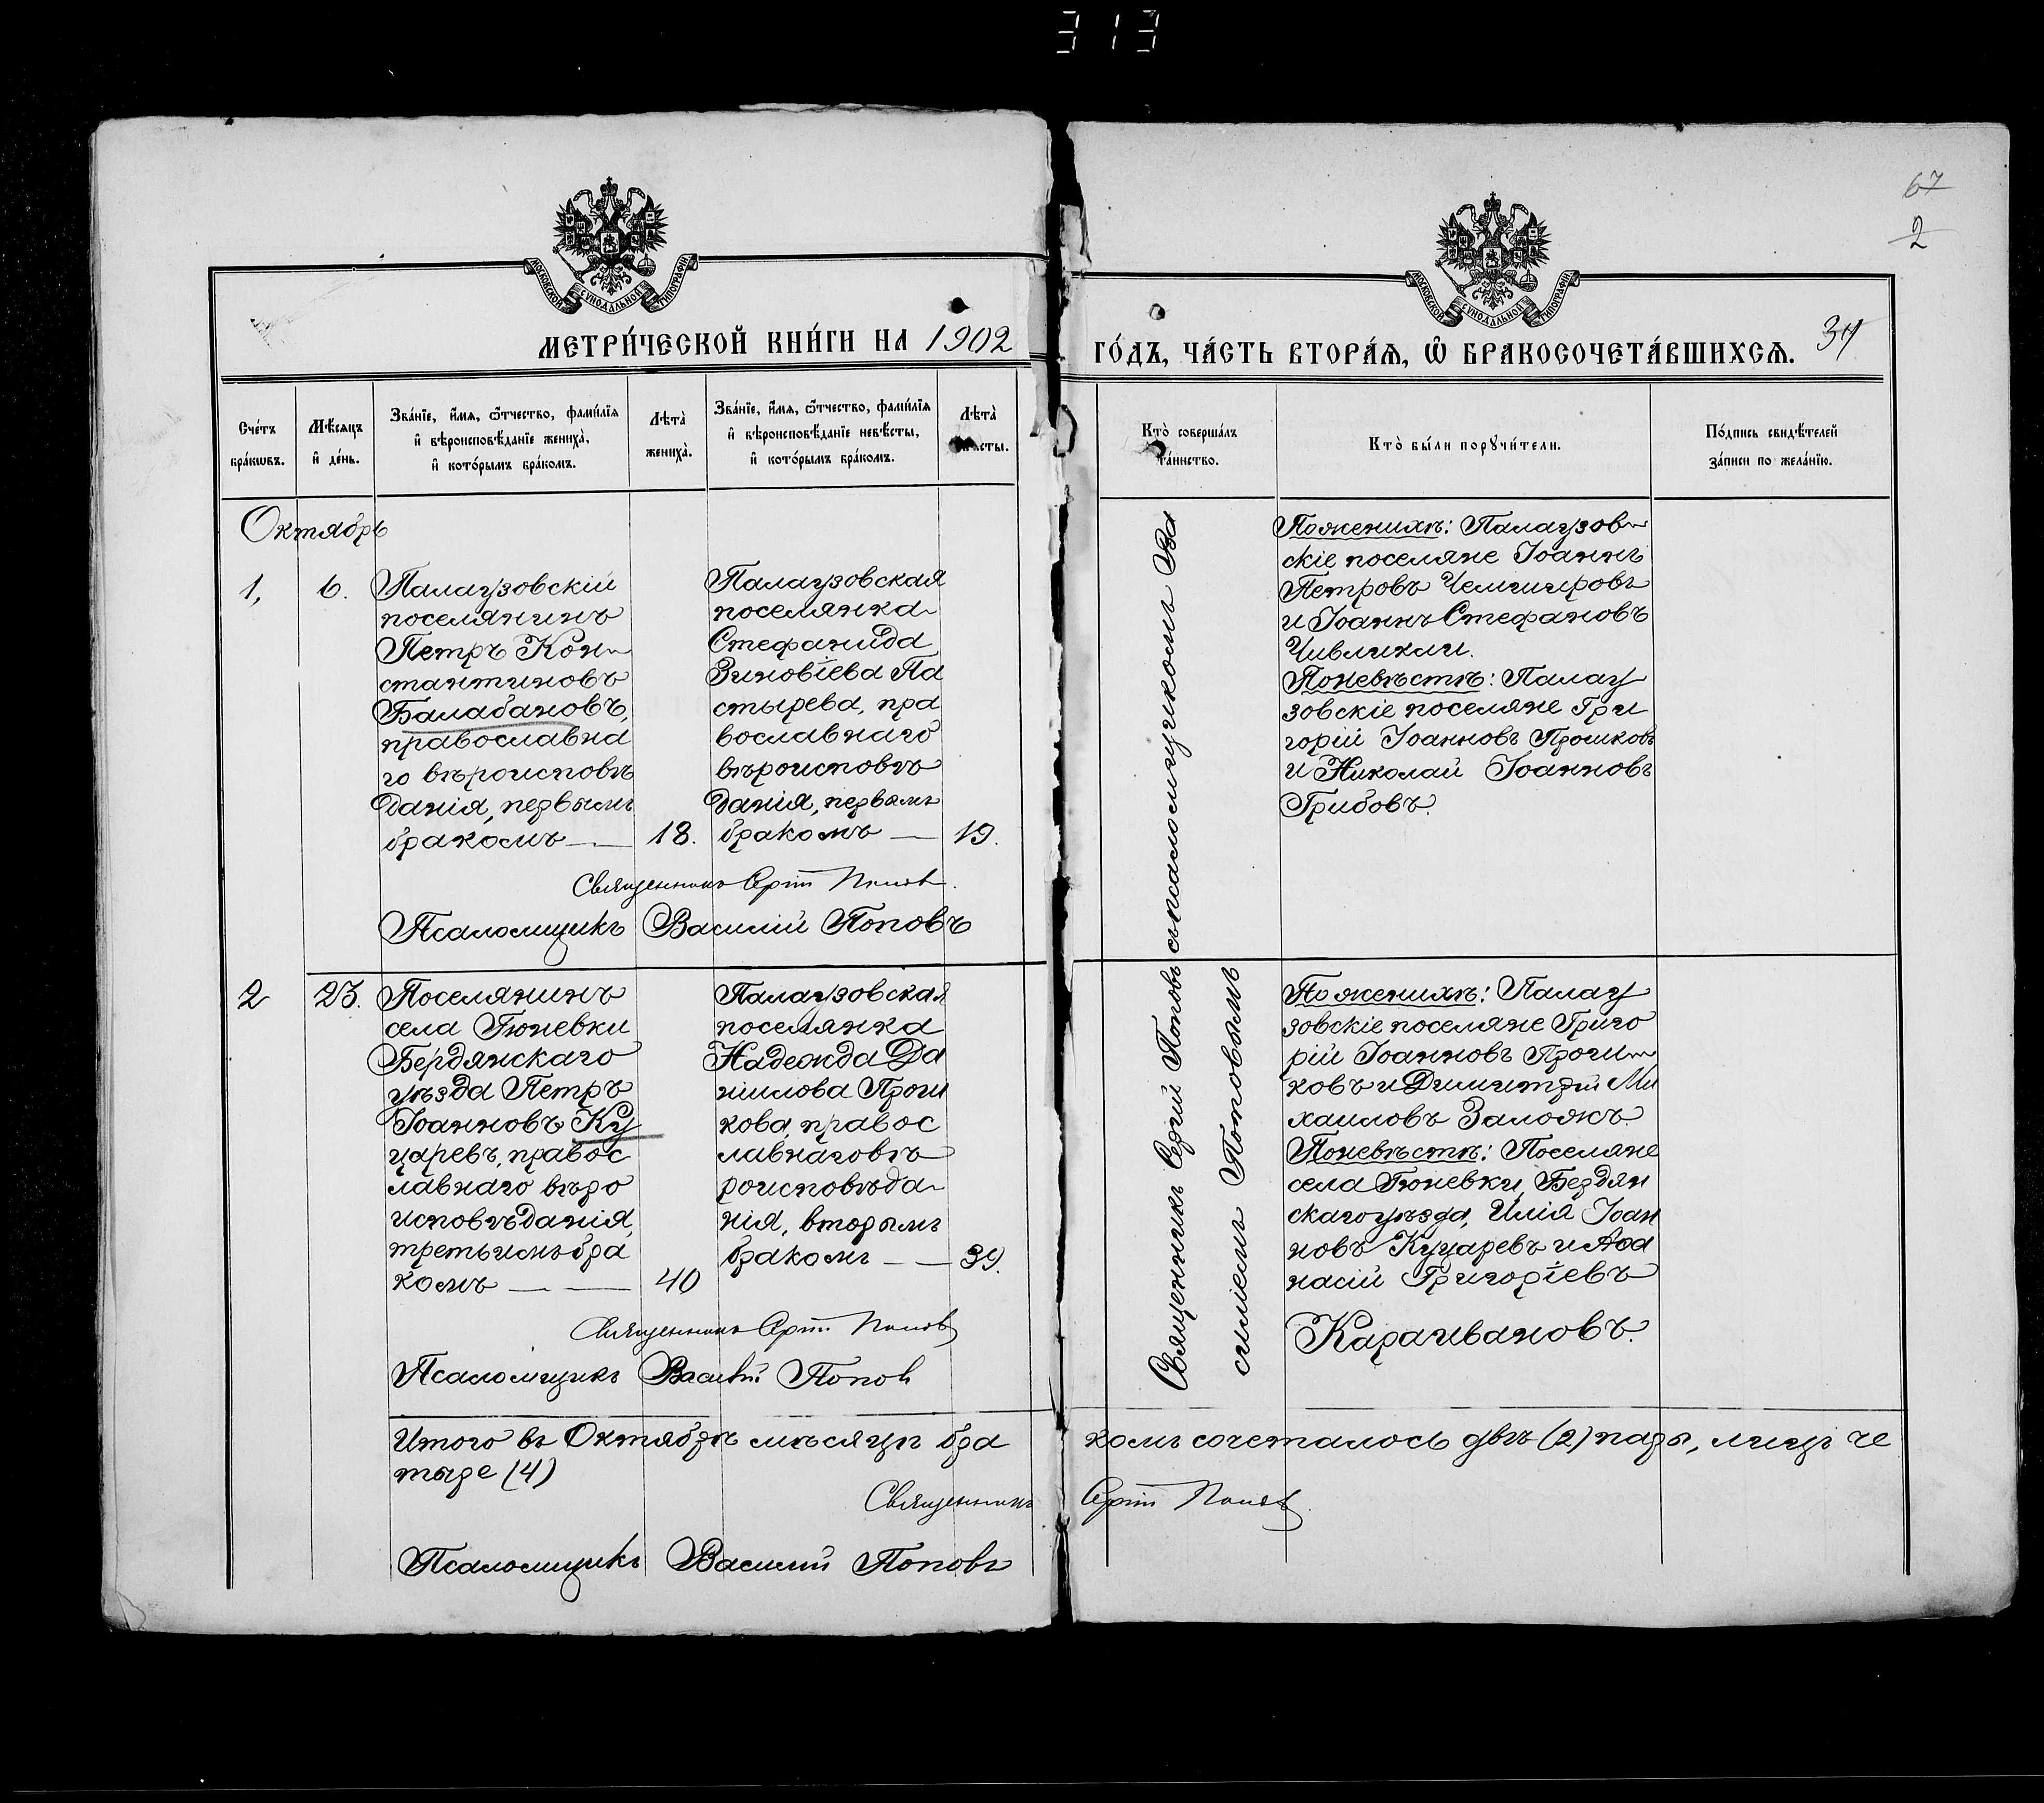 313
67
2
МОСКОВСКОЙ СѴНОДАЛЬНОЙ ТИПОГРАФІИ
МОСКОВСКОЙ СѴНОДАЛЬНОЙ ТИПОГРАФІИ
МЕТРИ́ЧЕСКОЙ КНИ́ГИ НА 1902
ГО́ДЪ, ЧА́СТЬ ВТОРА́Ѧ, Ѽ БРАКОСОЧЕТА́ВШИХСѦ.
34
Сче́тъ
бра́кѡвъ.
Мѣ́сѧцъ
и҆ де́нь.
Зва́нїе, и҆́мѧ, ѻ҆́тчество, фами́лїѧ
и҆ вѣроисповѣ́данїе жениха̀,
и҆ кото́рымъ бра́комъ.
Лѣта̀
жениха̀.
Зва́нїе, и҆́мѧ, ѻ҆́тчество, фами́лїѧ
и҆ вѣроисповѣ́данїе невѣ́сты,
и҆ кото́рымъ бра́комъ.
Лѣта̀
Кто̀ соверша́лъ
та́инство.
Кто̀ бы́ли порꙋчи́тели.
По́дпись свидѣ́телей
за́писи по жела́нїю.
Октябрь
1,
6.
Палаузовскій
поселянинъ
Петръ Кон-
стантиновъ
Балабановъ,
православна
го вѣроисповѣ
данія, первымъ
бракомъ —
18.
Палаузовская
поселянка
Стефанида
Зиновіева Па
стырева, пра
вославнаго
вѣроисповѣ
данія, первымъ
бракомъ —
19.
Священникъ Сергій Поповъ.
Псаломщикъ Василій Поповъ
Священникъ Сергій Поповъ съ псаломщикомъ Ва
силіемъ Поповымъ
По женихѣ: Палаузов-
скіе поселяне Іоаннъ
Петровъ Чемшировъ
и Іоаннъ Стефановъ
Чивликли.
По невѣстѣ: Палау
зовскіе поселяне Гри
горій Іоанновъ Прошковъ
и Николай Іоанновъ
Грибовъ.
2
23.
Поселянинъ
села Гюневки
Бердянскаго
уѣзда Петръ
Іоанновъ Ку
царевъ, правос
лавнаго вѣро
исповѣданія,
третьимъ бра
комъ — —
40
Палаузовская
поселянка
Надежда Да
ніилова Прош
кова, правос
лавнаго вѣ
роисповѣда-
нія, вторымъ
бракомъ — —
39.
Священникъ Сергій Поповъ
Псаломщикъ Василій Поповъ
По женихѣ: Палау
зовскіе поселяне Григо
рій Іоанновъ Прош-
ковъ и Димитрій Ми
хаиловъ Заложъ.
По невѣстѣ: Поселяне
села Гюневки, Бердян
скаго уѣзда, Илія Іоан
новъ Куцаревъ и Аѳа
насій Григоріевъ
Карагивановъ.
Итого въ Октябрѣ мѣсяцѣ бра
комъ сочеталось двѣ (2) пары, лицъ че
тыре (4)
Священникъ Сергій Поповъ.
Псаломщикъ Василій Поповъ